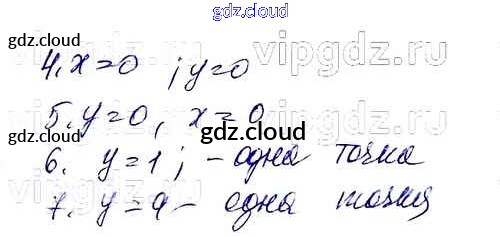 gdz.cloud
gdz.cloud vipgdz.ru
4. x=0 ; y=0
5. y=0, x=0
gdz.cloud
6. y=1; - одна точка
7. y=9 - одна точка
gdz.cloud